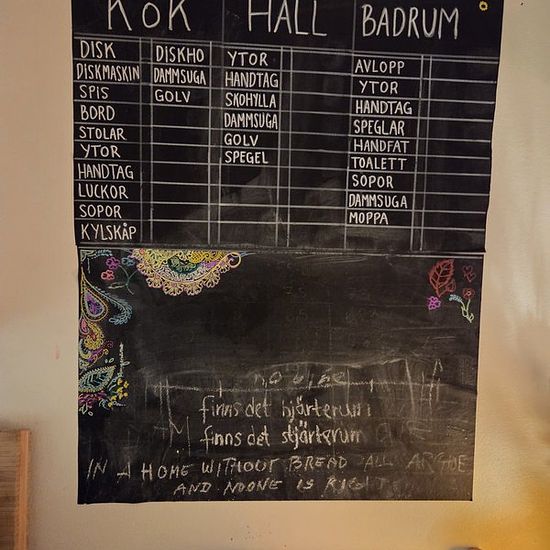 KÖK HALL BADRUM
DISK DISKHO YTOR AVLOPP
DISKMASKIN DAMMSUGA HANDTAG YTOR
SPIS GOLV SKOHYLLA HANDTAG
BORD DAMMSUGA SPEGLAR
STOLAR GOLV HANDFAT
YTOR SPEGEL TOALETT
HANDTAG SOPOR
LUCKOR DAMMSUGA
SOPOR MOPPA
KYLSKÅP
finns det hjärterum
finns det stjärterum
IN A HOME WITHOUT BREAD ALL ARGUE
AND NOONE IS RIGHT